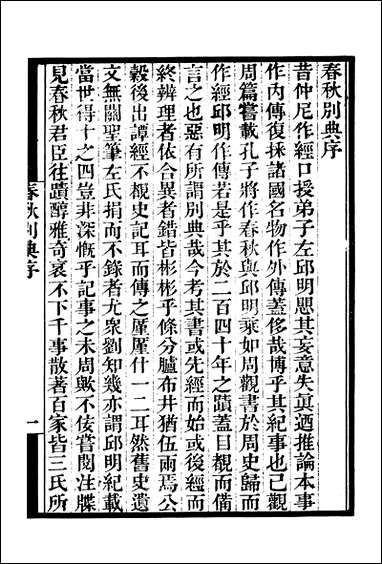 春秋別典序
昔仲尼作經口授弟子左邱明思其妄意失眞迺推論本事
作內傳復採諸國名物作外傳蓋侈哉博乎其紀事也已觀
周篇嘗載孔子將作春秋與邱明乘如周觀書於周史歸而
作經邱明作傳若是乎其於二百四十年之蹟蓋目覩而備
言之也惡有所謂別典哉今考其書或先經而始或後經而
終辨理者依合異者錯皆彬彬乎條分臚布井猶伍兩焉公
穀後出譚經不覩史記耳而傳之厪厪什一二耳然舊史遺
文無關聖筆左氏捐而不錄者尤衆劉知幾亦謂邱明紀載
當世得十之四豈非深慨乎記事之未周歟不佞嘗閱注牒
見春秋君臣往蹟醇雅奇衺不下千事散著百家皆三氏所
春秋別典序
一